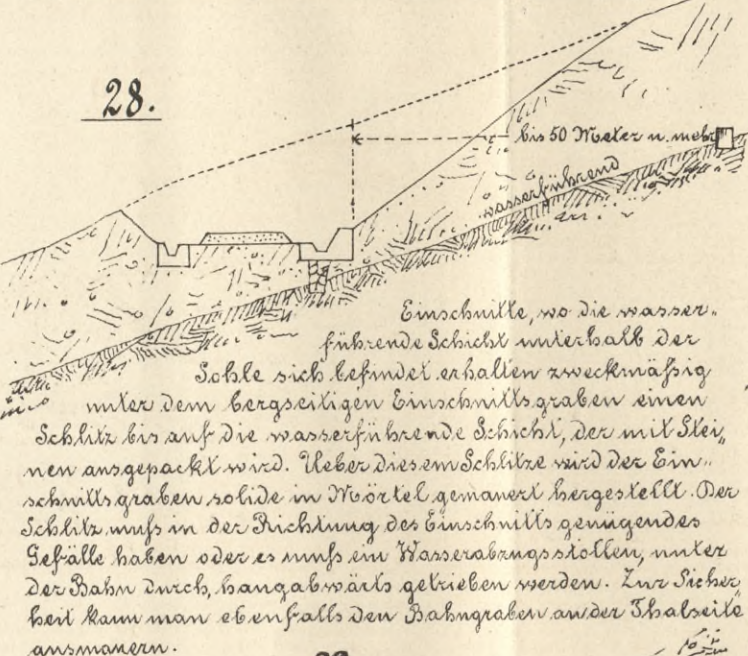 28.
bis 50 Meter u. mehr
wasserführend
Einschnitte, wo die wasser„
führende Schicht unterhalb der
Sohle sich befindet erhalten zweckmäßig
unter dem bergseitigen Einschnittsgraben einen
Schlitz bis auf die wasserführende Schicht, der mit Stei„
nen ausgepackt wird. Ueber diesem Schlitze wird der Ein„
schnittsgraben solide in Mörtel gemauert hergestellt. Der
Schlitz muß in der Richtung des Einschnitts genügendes
Gefälle haben oder es muß ein Wasserabzugsstollen, unter
der Bahn durch, hangabwärts getrieben werden. Zur Sicher„
heit kann man ebenfalls den Bahngraben an der Thalseite
ausmauern.